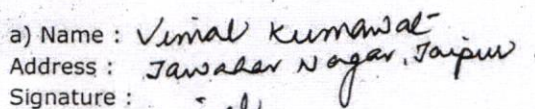 a) Name : Vimal Kumawat
Address : Jawahar Nagar, Jaipur
Signature :